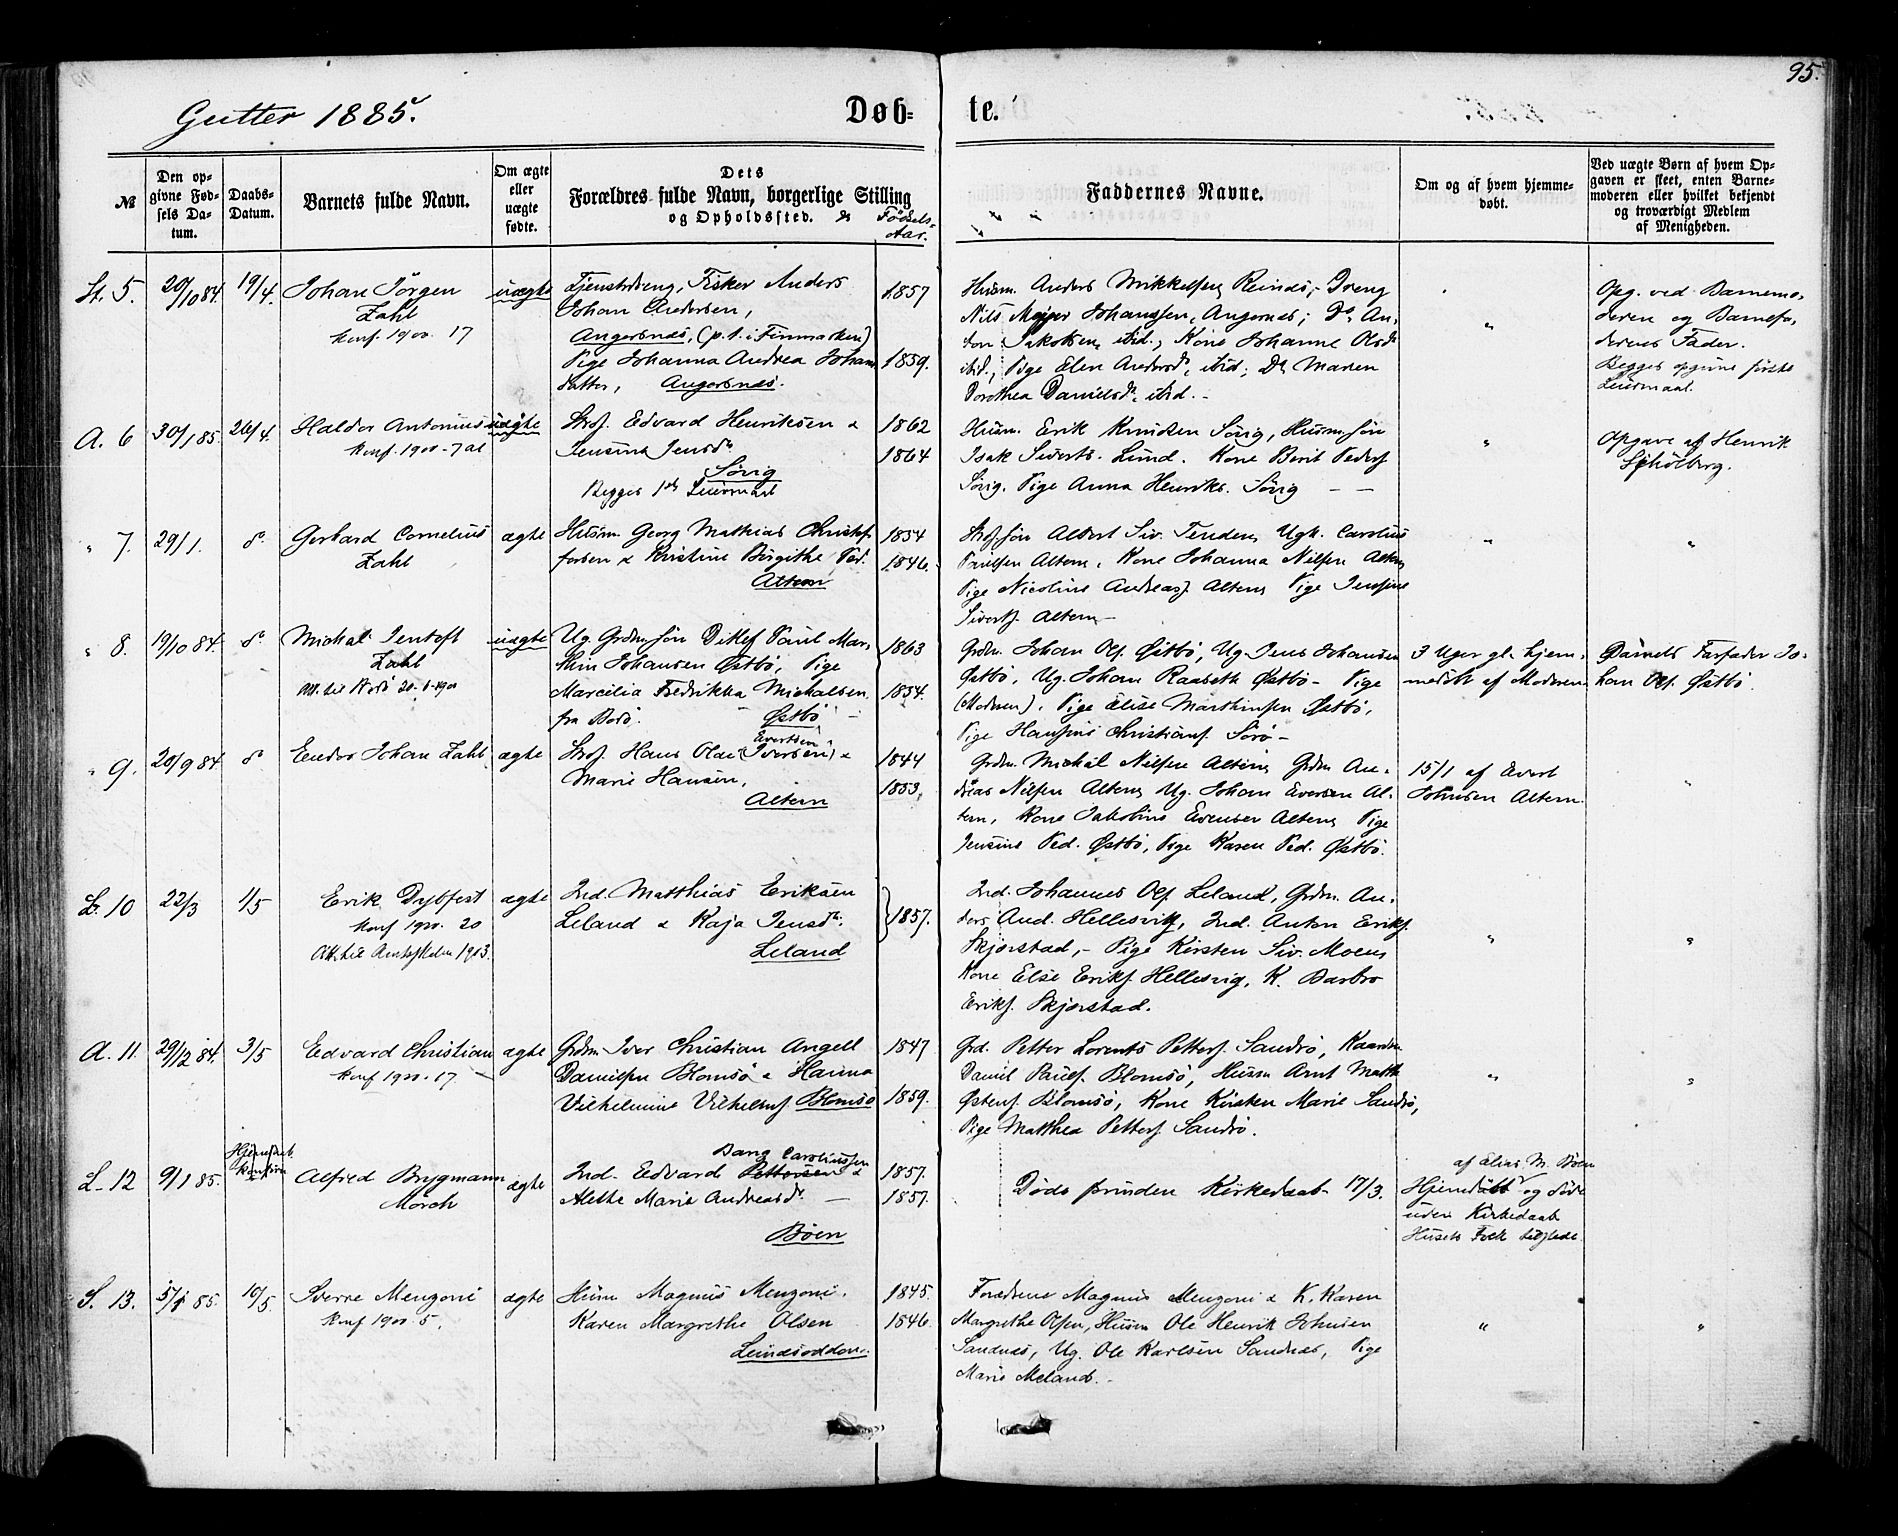 95.
Gutter 1885.
Døb-
te.
№
Den op-
givne Fød-
sels Da-
tum.
Daabs-
Datum.
Barnets fulde Navn.
Om ægte
eller
uægte
fødte.
Dets
Forældres fulde Navn, borgerlige Stilling
og Opholdssted. &
Fødsels-
Aar.
Faddernes Navne.
Om og af hvem hjemme-
døbt.
Ved uægte Børn af hvem Op-
gaven er skeet, enten Barne-
moderen eller hvilket bekjendt
og troværdigt Medlem
af Menigheden.
St. 5. 20/10 84. 19/4.
Johan Jörgen
Zahl
konf. 1900. 17
uægte
Tjenstdreng, Fisker Anders
Johan Andersen,
Angersnæs, (p.t. i Finmarken)
Pige Johanna Andrea Johans
datter, Angersnæs.
1857
1859.
Husm. Anders Mikkelsen Reinös, Dreng
Nils Meyer Johanssen, Angersnæs; Do. An-
ton Jakobsen, ibid., Kone Johanne Olsdr
ibid., Pige Elen Andersdr, ibid; Do Maren
Dorothea Danielsdr, ibid. -
"
Opg. ved Barnemo-
deren og Barnefa-
derens Fader.
Begges opgivne förste
Leiermaal.
A. 6 30/1 85. 26/4.
Haldor Antonius
konf. 1900 - 7 al
uægte
Strds. Edvard Henriksen &
Jensine Jensdr
Sörig
Begges 1ste Leiermaal
1862
1864
Husm. Erik Knudsen Sörig, Husm.sön
Isak Siverts. Lund. Kone Berit Peders
Sörig. Pige Anna Henriks. Sörig — —
"
Opgave af Henrik
Sjhölberg.
" 7. 29/1. do.
Gerhard Cornelius
Zahl
ægte
Husm. Georg Mathias Christof
fersen & Kristine Birgithe Ped.
Altern
1854
1846.
Strds.sön Albert Siv. Tenden, Ugk. Carolius
Paulsen Altern, Kone Johanna Nilsen Altern
Pige Nicoline Andreas. Altern, Pige Jensine
Siverts. Altern —
"
"
" 8. 19/10 84. do.
Mickal Jentoft
Zahl
Att. til Bodö 20-6-1900
uægte
Ug. Grdm.sön Ditlef Paul Mar-
thin Johansen Østbö, Pige
Marcilia Fredrikka Mickalsen
fra Bodö. — Østbö —
1863
1854.
Grdm. Johan Ols. Østbö, Ug. Jens Johansen
Østbö, Ug. Johan Raabeth Østbö - Pige
(Moderen). Pige Elise Marthinsen Østbö,
Pige Hansine Christians. Sörö -
3 Uger gl. hjem-
medöbt af Moderen
Barnets Farfader Jo-
han Ols. Østbö.
" 9. 20/9 84 do
Endor Johan Zahl
ægte
Evertsen
Strds. Hans Olai (Iversen) &
Marie Hansen,
Altern
1844
1853.
Grdm. Mickal Nilsen Altern, Grdm. An-
dreas Nilsen Altern, Ug. Johan Eversen Al-
tern, Kone Jakobine Evensen Altern, Pige
Jensine Ped. Østbö, Pige Karen Ped. Østbö.
15/1 af Evert
Johnsen Altern.
"
L. 10 22/3 1/5
Erik Dybfest
konf 1900. 20
Att. til 1903.
ægte
Ind. Matthias Eriksen
Leland & Kaja Jensdr.
Leland
1857.
Ind. Johannes Ols. Leland, Grdm. An-
ders And. Hellesvik, Ind. Anton Eriks.
Skjerstad, - Pige Kirsten Siv. Moen,
Kone Else Eriks. Hellesvig, K. Barbro
Eriks. Skjerstad.
"
"
A. 11. 29/12 84. 3/5
Edvard Christian
konf 1900. 17.
ægte
Grdm. Iver Christian Angell
Danielsen Blomsö & Hanna
Vilhelmine Vilhelms. Blomsö
1847
1859.
Grd. Petter Lorents Petters. Sandsö, Kaardm
Daniel Pauls. Blomsö, Husm Arnt Matth
Østens. Blomsö, Kone Kirsten Marie Sandsö,
Pige Matthea Petters. Sandsö.
"
"
L. 12 9/1 85.
Hjemdöbt.
Alfred Brygmann
Mörch
ægte
Bang Caroliussen
Ind. Edvard Pettersen &
Alethe Marie Andreasdr. —
Böen
1857.
1857.
Döds förinden Kirkedaab 17/3.
af Elias M. Böen
Hjemdöbt og döde
uden Kirkedaab
Husets Folk tilstede.
S. 13. 5/1 85. 10/5.
Sverre Menzoni
konf 1900. 5.
ægte
Husm Magnus Menzoni.
Karen Margrethe Olsen
Leinesodden.
1845.
1846.
Forældrene Magnus Menzoni & K. Karen
Margrethe Olsen, Husm Ole Henrik Johnsen
Sandnæs, Ug. Ole Karlsen Sandnæs, Pige
Marie Meland. -
"
"